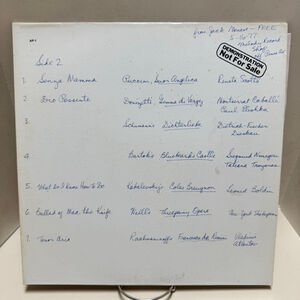 from Jack Moran - FREE
5-16-77
Melody Record
Shop
DEMONSTRATION
Not For Sale
Side 2
1 - Senza Mamma Puccini, Suor Angelica Renata Scotto
2 - Dio Possente Donizetti Gemma di Vergy Montserrat Caballé
Paul Plishka
3. Schumann's Dichterliebe Dietrich Fischer
Dieskau
4. Bartok's Bluebeard's Castle Siegmund Nimsgern
Tatiana Troyanos
5. What do I know How to Do Kabalevsky's Colas Breugnon Leonid Boldin
6 - Ballad of Mac the Knife Weill's Threepenny Opera New York Shakespeare
7 - Tenor Aria Rachmaninoff's Francesca da Rimini Vladimir
Atlantov